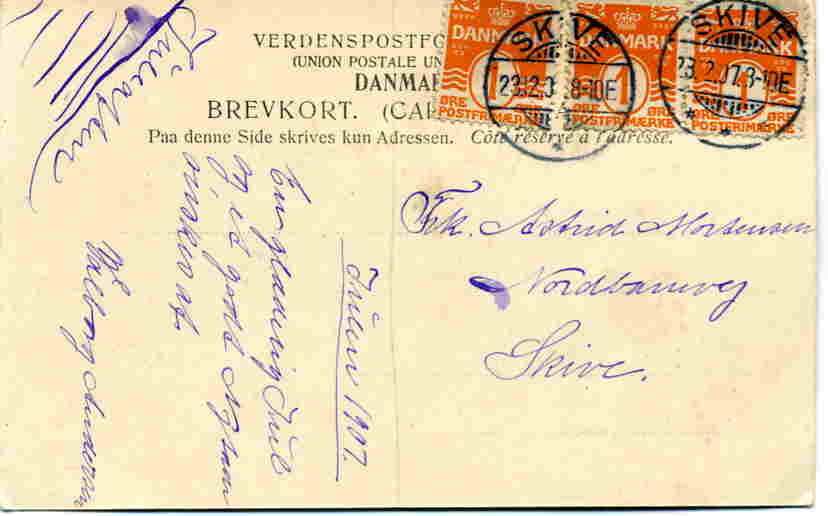 VERDENSPOSTFO
(UNION POSTALE UN
DANMAR
BREVKORT. (CAR
Paa denne Side skrives kun Adressen. Côté réservé à l'adresse.
DANMARK
1
ØRE
POSTFRIMÆRKE
DANMARK
1
ØRE ØRE
POSTFRIMÆRKE
1
ØRE ØRE
POSTFRIMÆRKE
SKIVE
23.12.0 8-10E
SKIVE
23.12.07.8-10E
Frk. Astrid Mortensen
Nordbanevej
Skive.
Julen 1907.
En glædelig Jul
og et godt Nytaar
ønskes af
Valborg Andersen